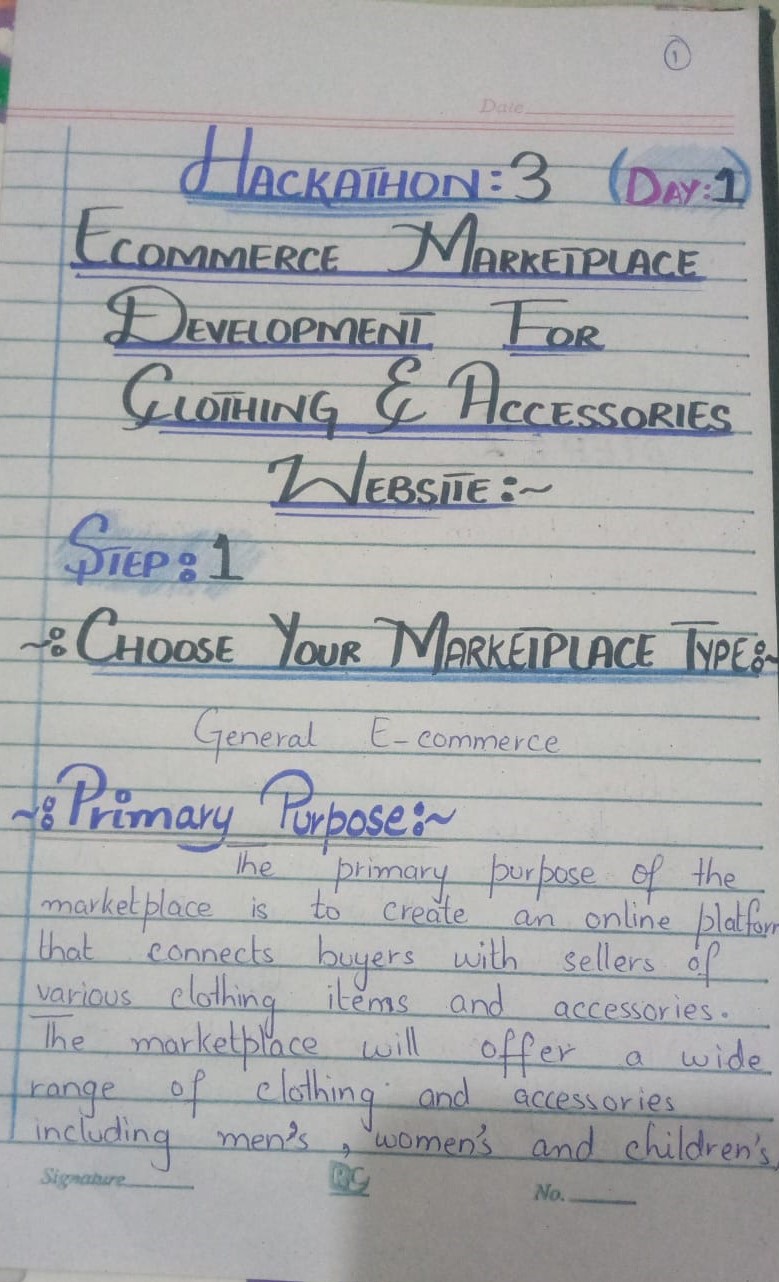 1
Date
HACKATHON:3 (DAY:1)
ECOMMERCE MARKETPLACE
DEVELOPMENT FOR
CLOTHING & ACCESSORIES
WEBSITE:~
STEP:1
~:CHOOSE YOUR MARKETPLACE TYPE:~
General E-commerce
~:Primary Purpose:~
The primary purpose of the
marketplace is to create an online platform
that connects buyers with sellers of
various clothing items and accessories.
The marketplace will offer a wide
range of clothing and accessories
including men's, women's and children's,
Signature RC No.